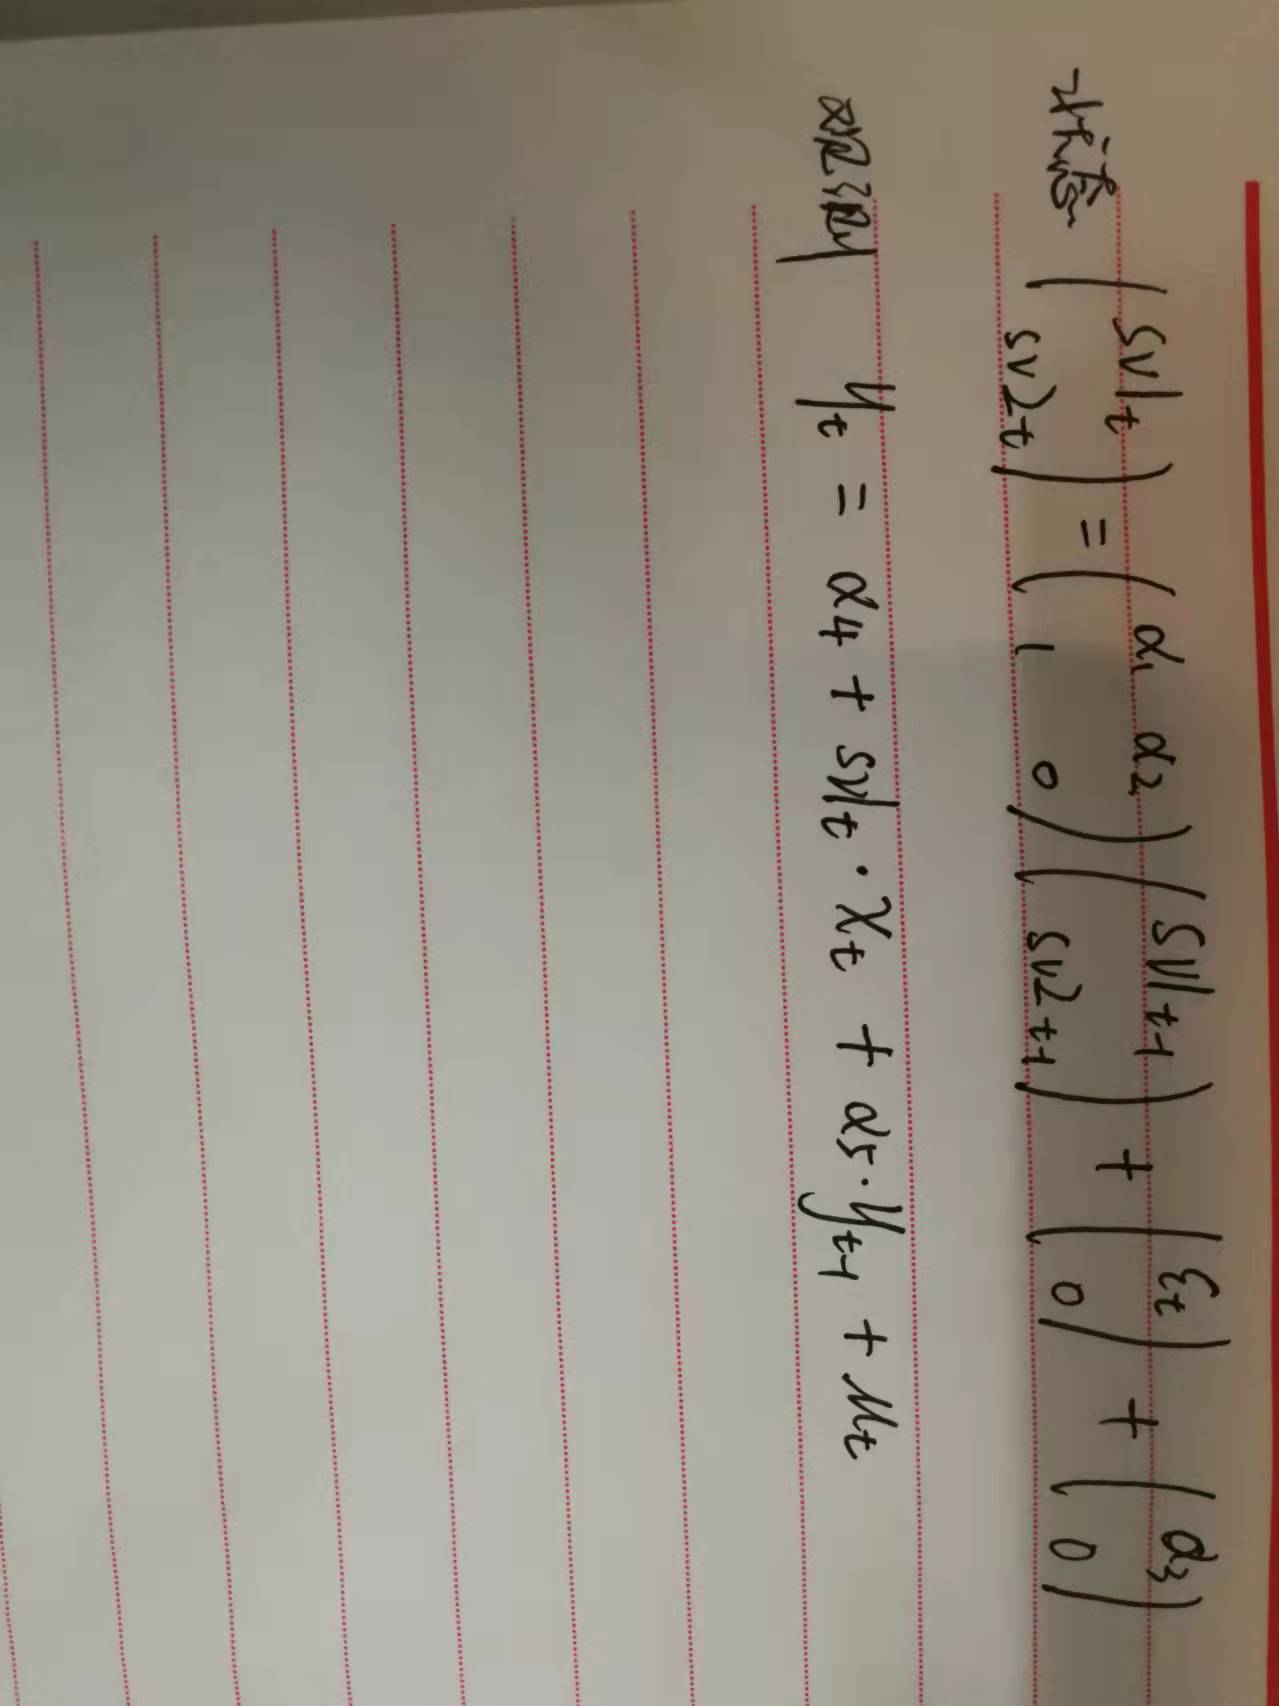 状态 (SV1t SV2t) = (α1 α2 1 0)(SV1t-1 SV2t-1) + (εt 0) + (α3 0)
观测 yt = α4 + SV1t · Xt + α5 · yt-1 + Mt